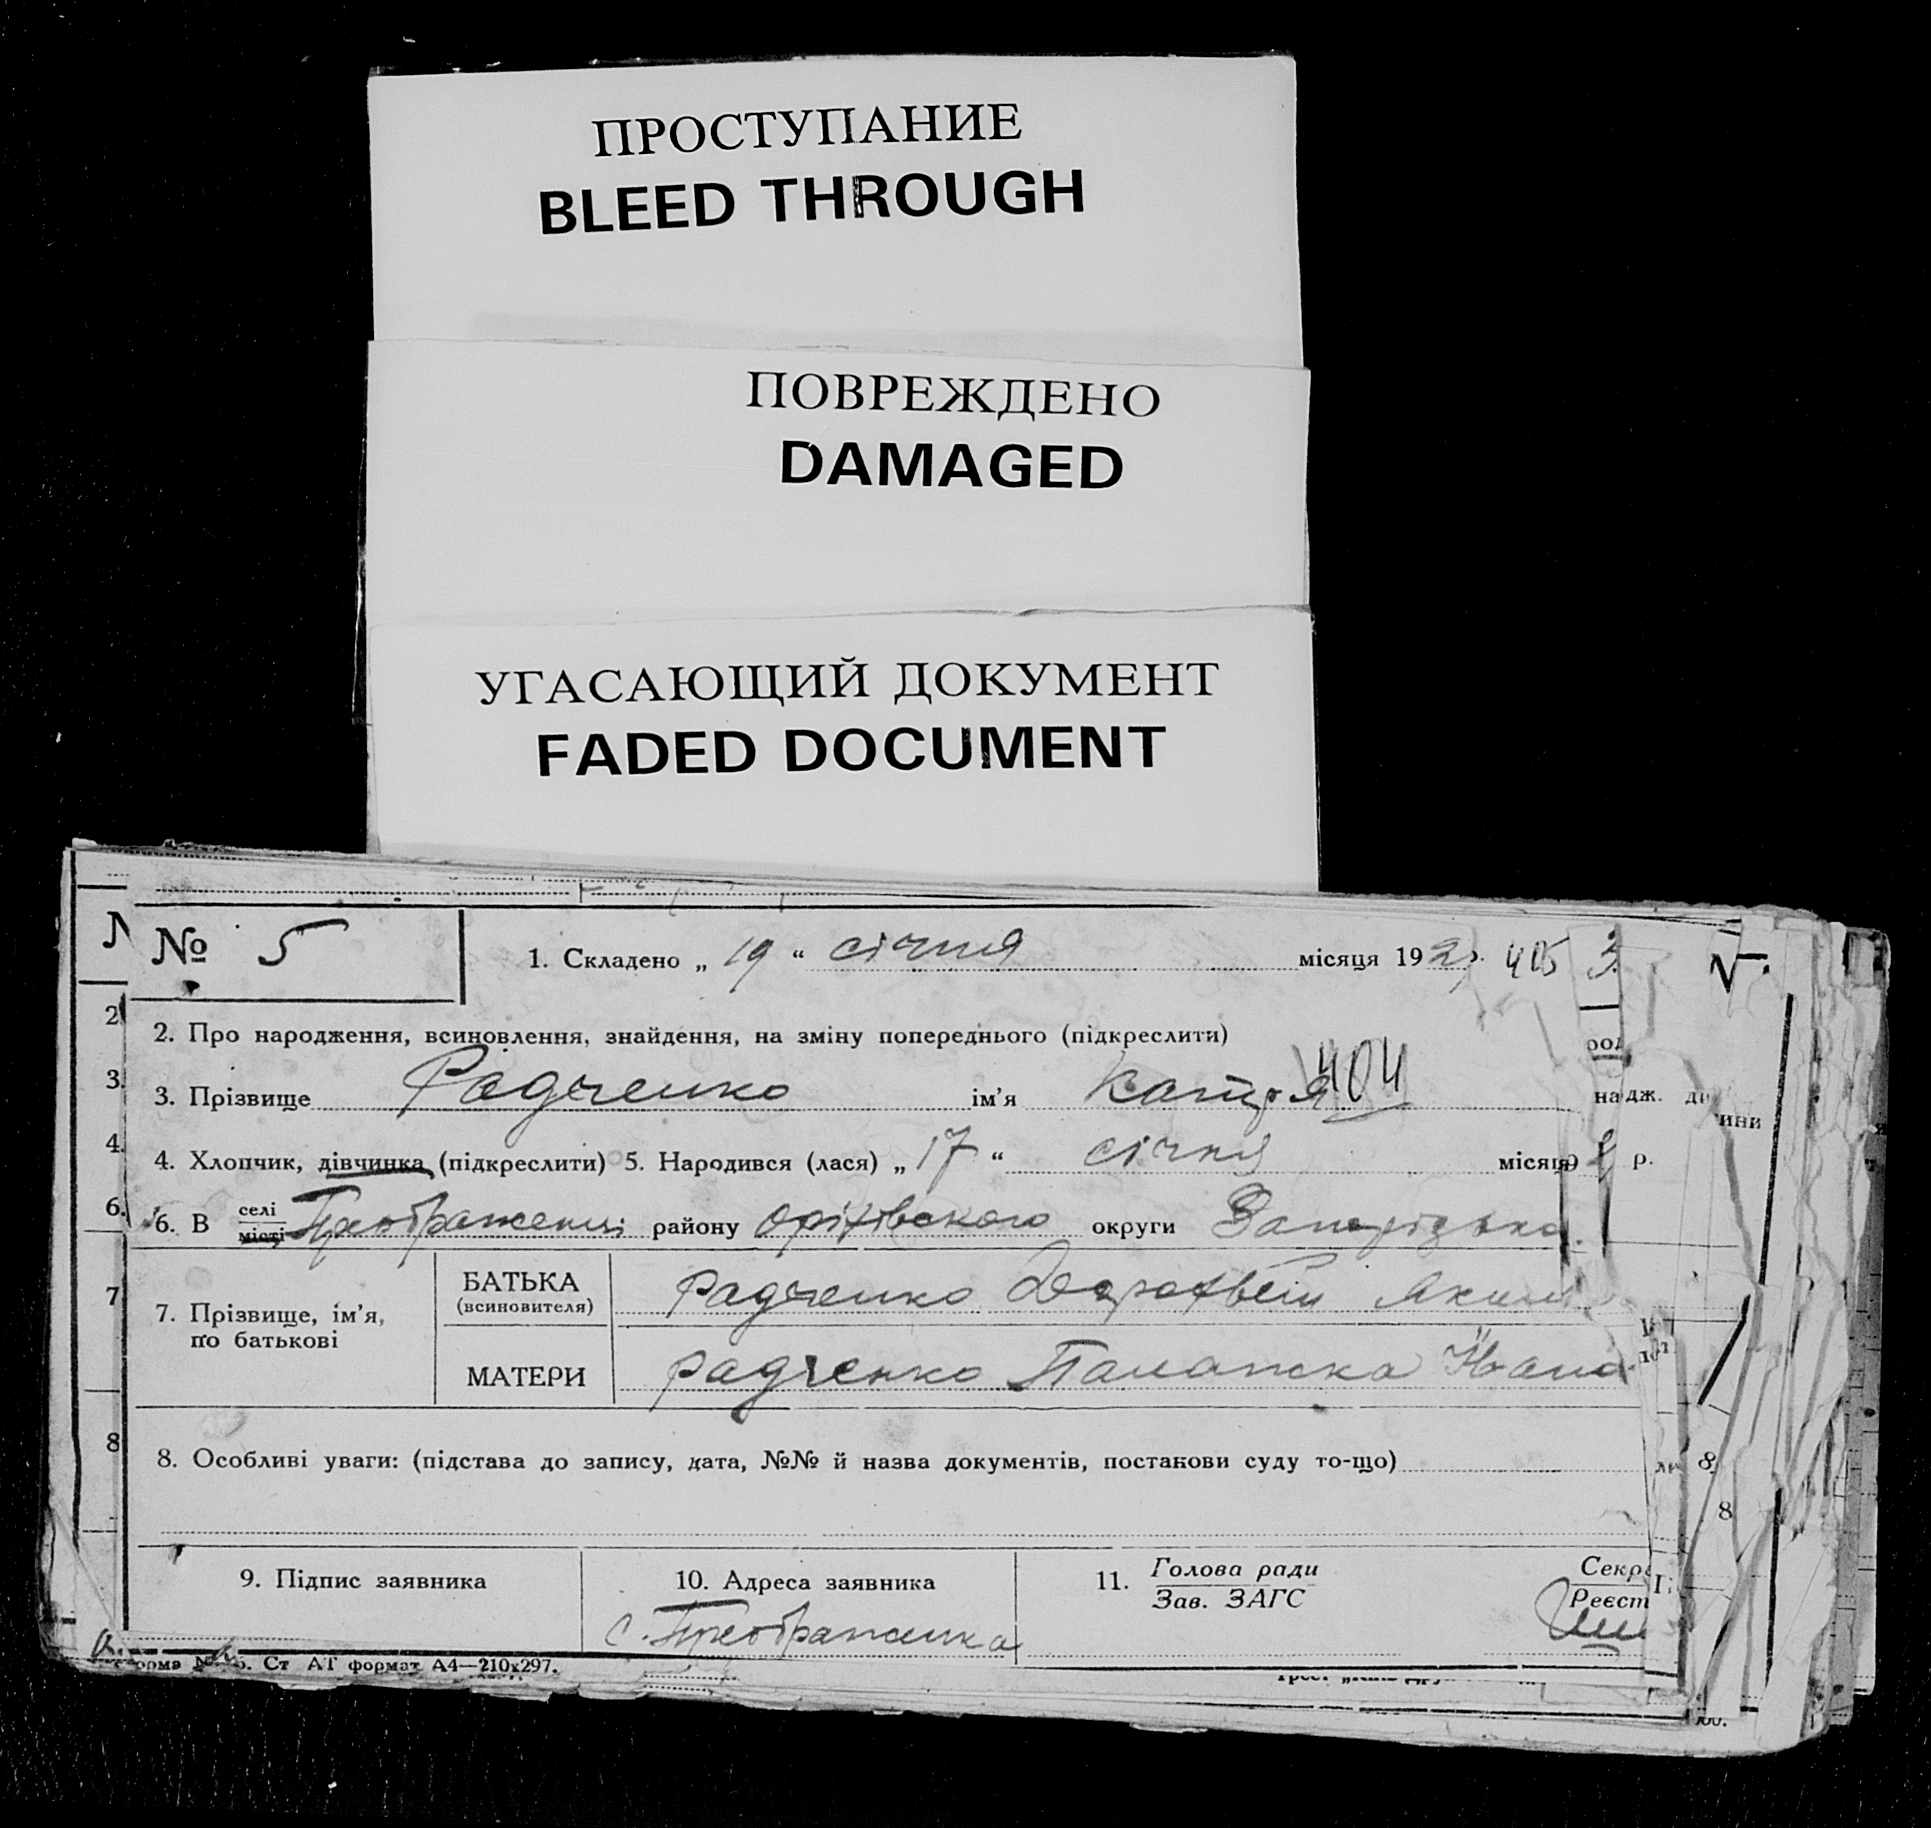 ПРОСТУПАНИЕ
BLEED THROUGH
ПОВРЕЖДЕНО
DAMAGED
УГАСАЮЩИЙ ДОКУМЕНТ
FADED DOCUMENT
№ 5
1. Складено „ 19 “ січня місяця 192 р. 405 3
2. Про народження, всиновлення, знайдення, на зміну попереднього (підкреслити)
3. Прізвище Радченко ім'я Катря 404
4. Хлопчик, дівчинка (підкреслити) 5. Народився (лася) „ 17 “ січня місяця р.
6. В селі місті Преображенці району Оріхівського округи Запорізька
7. Прізвище, ім'я, по батькові
БАТЬКА (всиновителя) Радченко Дорофвей Яким
МАТЕРИ Радченко Палажка Івана
8. Особливі уваги: (підстава до запису, дата, №№ й назва документів, постанови суду то-що)
9. Підпис заявника
10. Адреса заявника
с. Преображенка
11. Голова ради
Зав. ЗАГС
Секре
Реєст
Ст АТ формат А4—210х297.